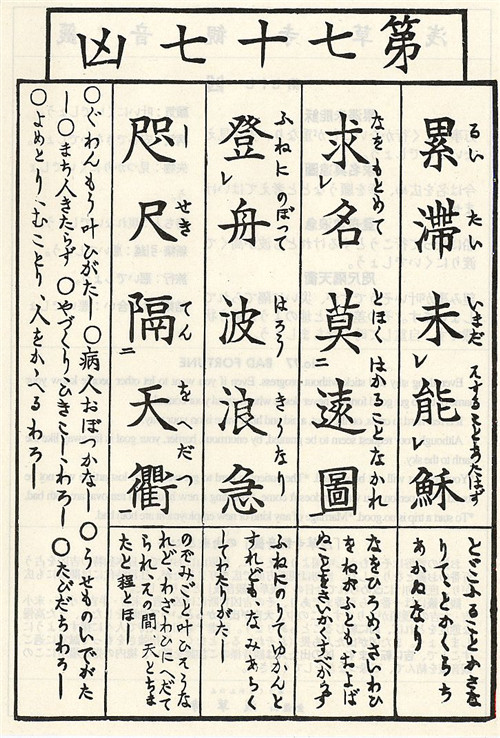 第七十七凶
累滞未レ能レ穌
るい たい いまだ
とどこふることかさな
りてとかくらち
あかぬなり
求名莫二遠圖
なをもとめて とほくはかることなかれ
なをひろめ、さいわひ
をねがふともおよば
登レ舟波浪急
ふねにのぼって はろうきなり
ふねにのりてゆかんと
すれども、なみあらく
してわたりがたし
咫尺隔二天衢
しせき てんくをへだつ
のぞみごと叶へそうな
れど、わざわひにへだて
られ、その間、天とちま
たと程とほし
○ぐわんもう叶ひがたし ○病人おぼつかな
し ○まち人きたらず ○やづくりひきこしわろし
○よめとりむことり人をかゝへるわろし
○うせものいでがた
○たびだちわろし